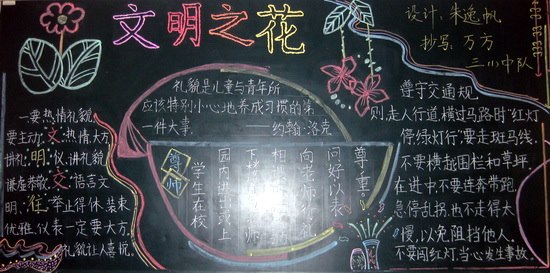 文明之花
设计:朱逸帆
抄写:万方
三(1)中队
一要热情礼貌
要主动:文热情大方
讲礼:明仪.讲礼貌
谦虚恭敬.文语言文
明.准举止得体.装束
优雅.仪表一定要大方.
礼貌让人喜悦.
礼貌是儿童与青年所
应该特别小心地养成习惯的第
一件大事. ——约翰·洛克
尊师
学生在校
园内进出或上
下楼 师
相
向老师行礼
问好以表
尊重
遵守交通规
则走人行道,横过马路时"红灯
停,绿灯行"要走斑马线,
不要横越围栏和草坪,
在进中不要连奔带跑,
急停乱拐,也不走得太
慢,以免阻挡他人,
不要闯红灯,当心发生事故.